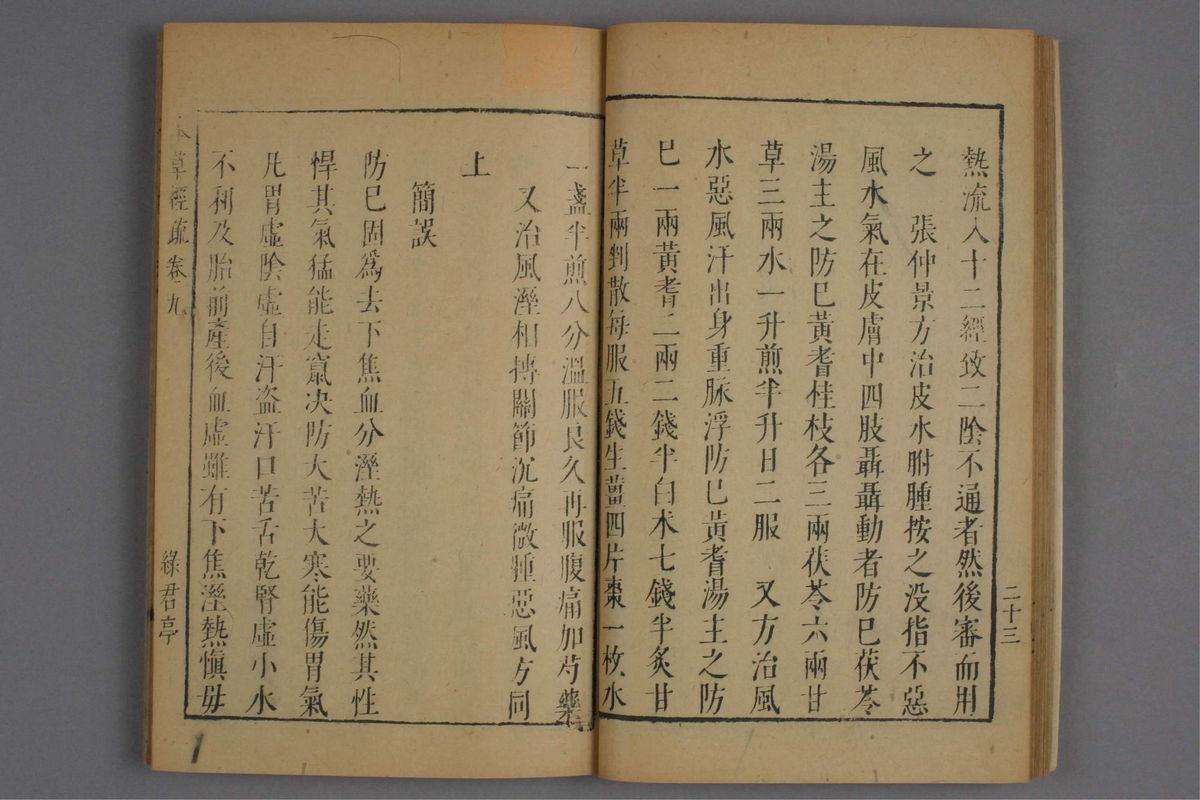 二十三
熱流入十二經致二陰不通者然後審而用
之　張仲景方治皮水胕腫按之没指不惡
風水氣在皮膚中四肢聶聶動者防巳茯苓
湯主之防巳黃耆桂枝各三兩茯苓六兩甘
草三兩水一升煎半升日二服　又方治風
水惡風汗出身重脉浮防巳黃耆湯主之防
巳一兩黃耆二兩二錢半白朮七錢半炙甘
草半兩剉散每服五錢生薑四片棗一枚水
一盞半煎八分溫服良久再服腹痛加芍藥
又治風溼相搏關節沉痛微腫惡風方同
上
簡誤
防巳固爲去下焦血分溼熱之要藥然其性
悍其氣猛能走竄决防大苦大寒能傷胃氣
凡胃虛陰虛自汗盜汗口苦舌乾腎虛小水
不利及胎前產後血虛雖有下焦溼熱慎毋
草經疏卷九
綠君亭